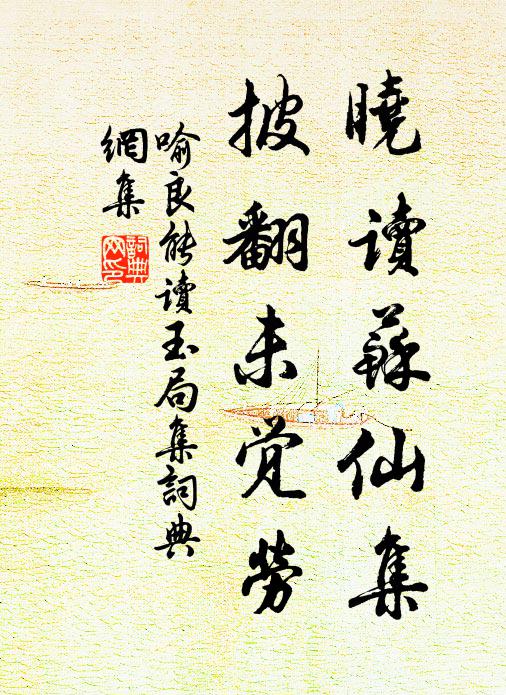 曉讀蘇仙集
披翻未觉勞
喻良能讀玉局集詞典
網集
詞典网印